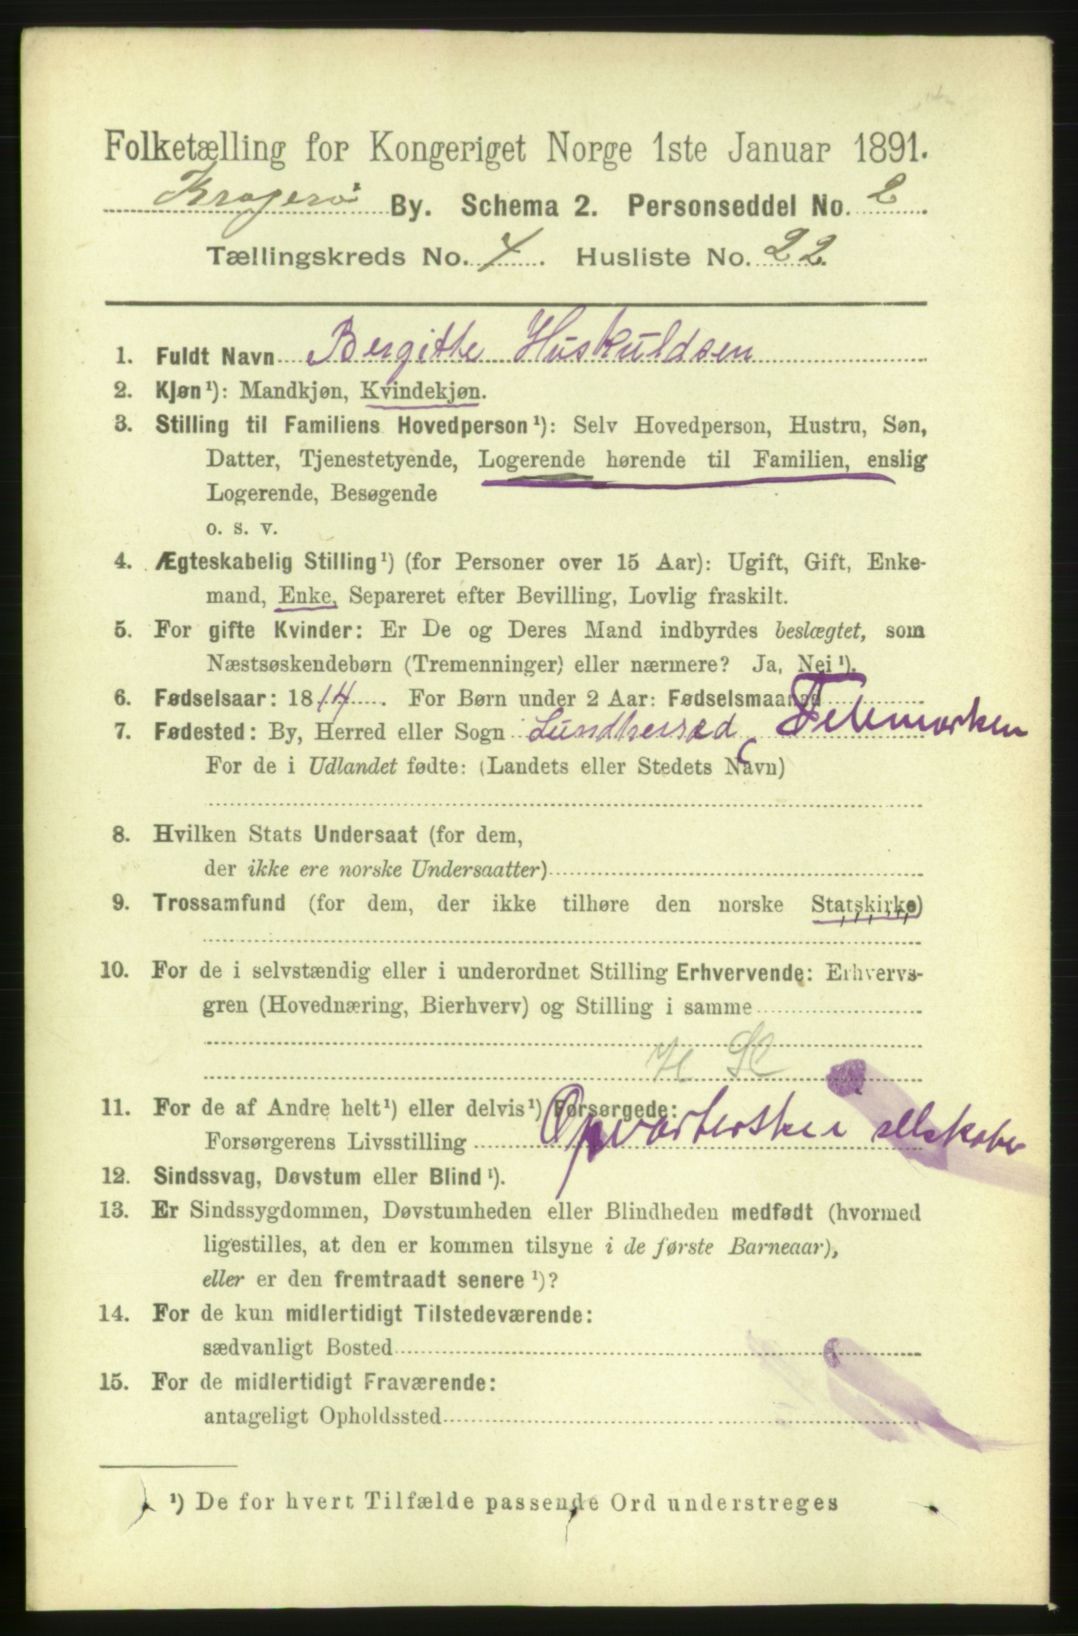 Folketælling for Kongeriget Norge 1ste Januar 1891.
Kragerø By. Schema 2. Personseddel No. 2
Tællingskreds No. 4. Husliste No. 22
1. Fuldt Navn Bergitte Huskuldsen
2. Kjøn¹): Mandkjøn, Kvindekjøn.
3. Stilling til Familiens Hovedperson¹): Selv Hovedperson, Hustru, Søn,
Datter, Tjenestetyende, Logerende hørende til Familien, enslig
Logerende, Besøgende
o. s. v.
4. Ægteskabelig Stilling¹) (for Personer over 15 Aar): Ugift, Gift, Enke-
mand, Enke, Separeret efter Bevilling, Lovlig fraskilt.
5. For gifte Kvinder: Er De og Deres Mand indbyrdes beslægtet, som
Næstsøskendebørn (Tremenninger) eller nærmere? Ja, Nei¹).
6. Fødselsaar: 1814. For Børn under 2 Aar: Fødselsmaaned
7. Fødested: By, Herred eller Sogn Lundherred, Telemarken
For de i Udlandet fødte: (Landets eller Stedets Navn)
8. Hvilken Stats Undersaat (for dem,
der ikke ere norske Undersaatter)
9. Trossamfund (for dem, der ikke tilhøre den norske Statskirke)
10. For de i selvstændig eller i underordnet Stilling Erhvervende: Erhvervs-
gren (Hovednæring, Bierhverv) og Stilling i samme
11. For de af Andre helt¹) eller delvis¹) Forsørgede:
Forsørgerens Livsstilling Opvarterske i
12. Sindssvag, Døvstum eller Blind¹).
13. Er Sindssygdommen, Døvstumheden eller Blindheden medfødt (hvormed
ligestilles, at den er kommen tilsyne i de første Barneaar),
eller er den fremtraadt senere¹)?
14. For de kun midlertidigt Tilstedeværende:
sædvanligt Bosted
15. For de midlertidigt Fraværende:
antageligt Opholdssted
¹) De for hvert Tilfælde passende Ord understreges